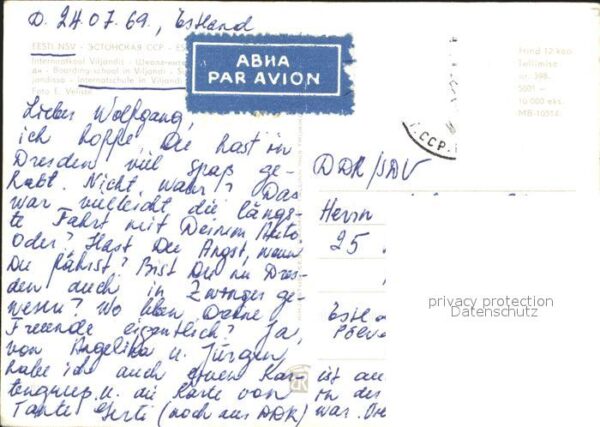 D. 24.07.69., Estland
EESTI NSV - ЭСТОНСКАЯ ССР - ES
Internaatkool Viljandis
Boarding-school in Viljandi
Internatschule in Viljandi
Foto E. Veliste
АВИА
PAR AVION
Hind 12 kop
Tellimise
nr. 398.
5001 -
10.000 eks.
MB-10514
С.ССР.
Lieber Wolfgang,
ich hoffe, Du hast in
Dresden viel Spaß ge-
habt. Nicht wahr? Das
war vielleicht die längs-
te Fahrt mit Deinem Auto.
Oder? Hast Du Angst, wenn
Du fährst? Bist Du in Dres-
den auch in Zwinger ge-
wesen? Wo leben Deine
Freunde eigentlich? Ja,
von Angelika u. Jürgen
habe ich auch einen Kar-
tengruß u. die Karte von
Tante Gerti (noch aus DDR)
DDR/
Herrn
25
Estla
privacy protection
Datenschutz
ist au
in des
war.